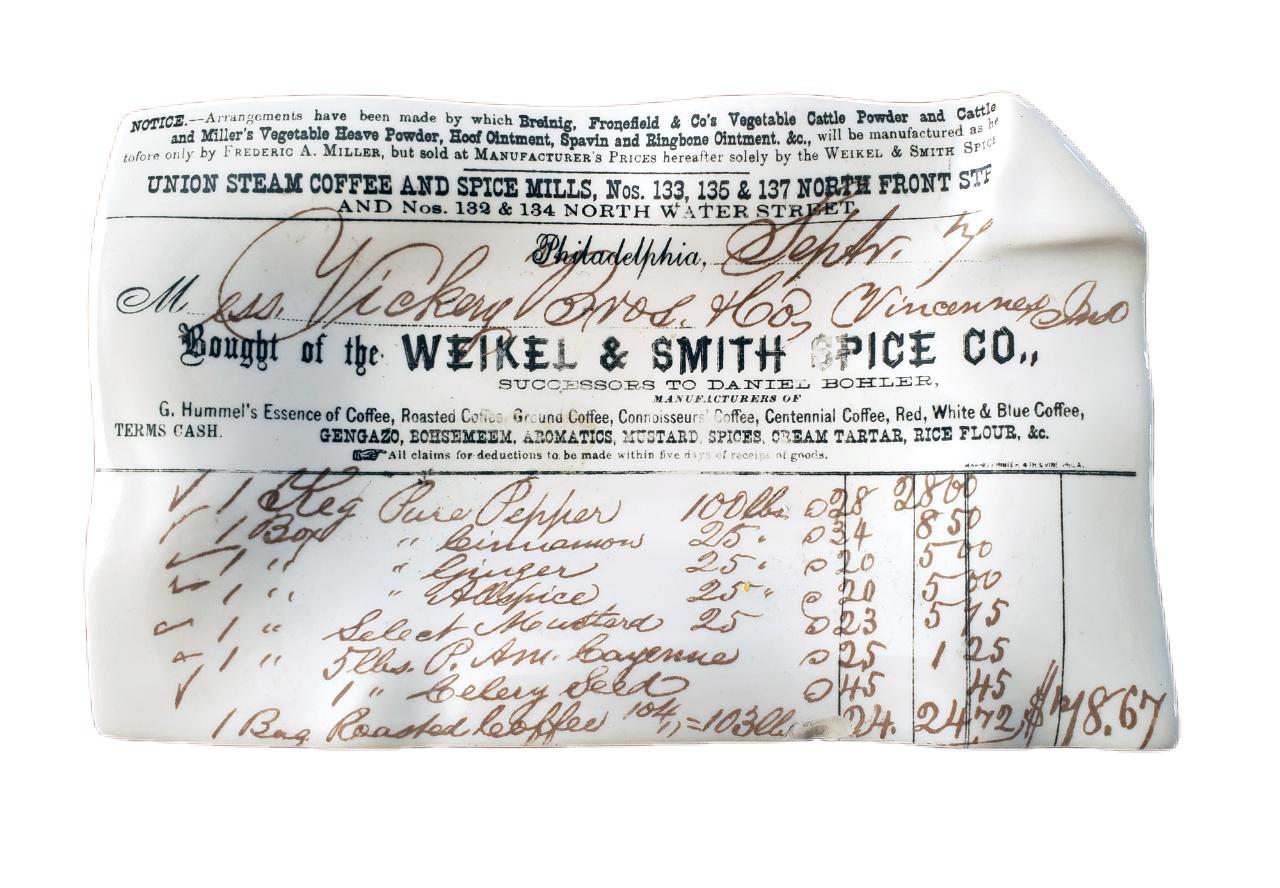 NOTICE.—Arrangements have been made by which Breinig, Fronefield & Co's Vegetable Cattle Powder and Cattle
and Miller's Vegetable Heave Powder, Hoof Ointment, Spavin and Ringbone Ointment. &c., will be manufactured as he
tofore only by FREDERIC A. MILLER, but sold at MANUFACTURER'S PRICES hereafter solely by the WEIKEL & SMITH SPICE
UNION STEAM COFFEE AND SPICE MILLS, Nos. 133, 135 & 137 NORTH FRONT STR
AND Nos. 132 & 134 NORTH WATER STREET,
Philadelphia, Septr. 7
Mess. Vickery Bros. & Co, Vincennes Ind
Bought of the WEIKEL & SMITH SPICE CO.,
SUCCESSORS TO DANIEL BOHLER,
MANUFACTURERS OF
G. Hummel's Essence of Coffee, Roasted Coffee, Ground Coffee, Connoisseurs' Coffee, Centennial Coffee, Red, White & Blue Coffee,
TERMS CASH. GENGAZO, BOHSEMEEM, AROMATICS, MUSTARD, SPICES, CREAM TARTAR, RICE FLOUR, &c.
☞All claims for deductions to be made within five days of receipt of goods.
✓ 1 Keg Pure Pepper 100 lbs @ 28 28 00
✓ 1 Box " Cinnamon 25 " @ 34 8 50
✓ 1 " " Ginger 25 " @ 20 5 00
✓ 1 " " Allspice 25 " @ 20 5 00
✓ 1 " Select Mustard 25 @ 23 5 75
✓ 1 " 5 lbs. P. Am. Cayenne @ 25 1 25
✓ 1 " Celery Seed @ 45 45
1 Bag Roasted Coffee = 103 lbs 24. 24.72 $78.67